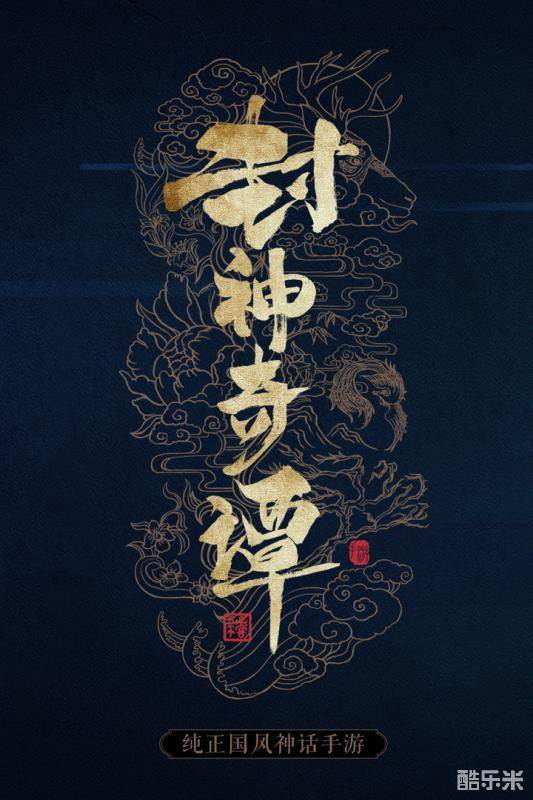 封神奇谭
纯正国风神话手游
酷乐米